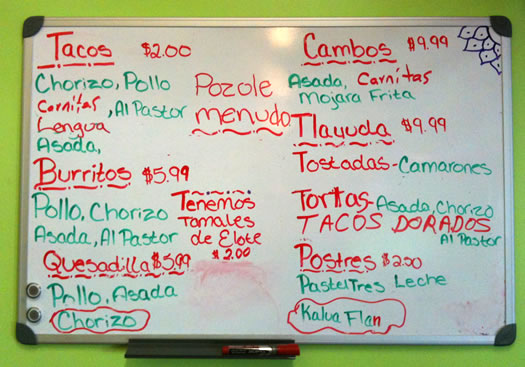 Tacos $2.00
Chorizo, Pollo
Carnitas, Al Pastor
Lengua
Asada,
Burritos $5.99
Pollo, Chorizo
Asada, Al Pastor
Quesadilla $5.99
Pollo, Asada
Chorizo
Pozole
menudo
Tenemos
Tamales
de Elote
$2.00
Cambos $9.99
Asada, Carnitas
Mojara Frita
Tlayuda $9.99
Tostadas-Camarones
Tortas-Asada, Chorizo
TACOS DORADOS
Al Pastor
Postres $2.00
Pastel Tres Leche
Kalua Flan